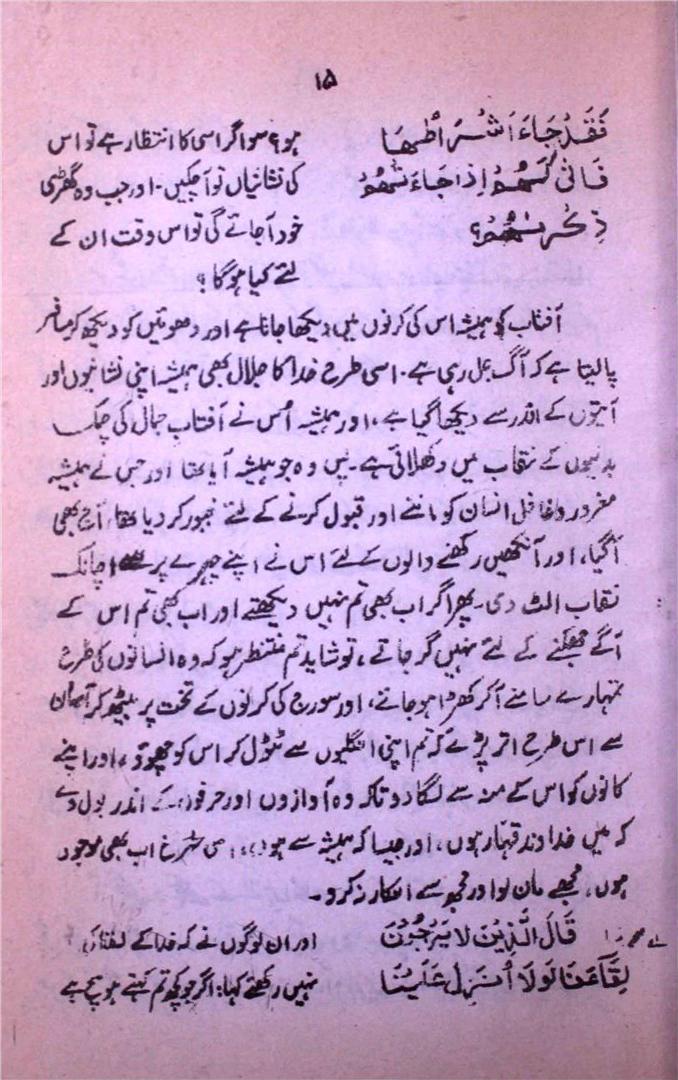 ۱۵
فَقَدْ جَاءَ اَشْرَاطُهَا
فَاَنّٰی لَهُمْ اِذَا جَاءَتْهُمْ
ذِکْرٰىهُمْ؟
ہو؟ سو اگر اسی کا انتظار ہے تو اس
کی نشانیاں تو آچکیں۔ اور جب وہ گھڑی
خود آجائے گی تو اس وقت ان کے
لئے کیا ہوگا؟
آفتاب کو ہمیشہ اس کی کرنوں میں دیکھا جاتا ہے اور دھوئیں کو دیکھ کر مسافر
پا لیتا ہے کہ آگ جل رہی ہے۔ اسی طرح خدا کا جلال بھی ہمیشہ اپنی نشانیوں اور
آیتوں کے اندر سے دیکھا گیا ہے، اور ہمیشہ اُس نے آفتاب جمال کی چمک
بدلیوں کے نقاب میں دکھلائی ہے۔ پس وہ جو ہمیشہ آیا تھا اور جس نے ہمیشہ
مغرور و غافل انسان کو ماننے اور قبول کرنے کے لئے مجبور کر دیا تھا، آج بھی
آگیا، اور آنکھیں رکھنے والوں کے لئے اس نے اپنے چہرے پر سے اچانک
نقاب الٹ دی۔ پھر اگر اب بھی تم نہیں دیکھتے اور اب بھی تم اس کے
آگے جھکنے کے لئے نہیں گر جاتے، تو شاید تم منتظر ہو کہ وہ انسانوں کی طرح
تمہارے سامنے آکر کھڑا ہو جائے، اور سورج کی کرنوں کے تخت پر بیٹھ کر آسمان
سے اس طرح اتر پڑے کہ تم اپنی انگلیوں سے ٹٹول کر اس کو چھوؤ، اور اپنے
کانوں کو اس کے منہ سے لگا دو تاکہ وہ آوازوں اور حرفوں کے اندر بول دے
کہ میں خداوند قہار ہوں، اور جیسا کہ ہمیشہ سے ہوں، اسی طرح اب بھی موجود
ہوں، مجھے مان لو اور مجھ سے انکار نہ کرو۔
قَالَ الَّذِیْنَ لَا یَرْجُوْنَ
لِقَاءَنَا لَوْلَا اُنْزِلَ عَلَیْنَا
اور ان لوگوں نے کہ خدا کے لقا کی
نہیں رکھتے کہا: اگر جو کچھ تم کہتے ہو سچ ہے